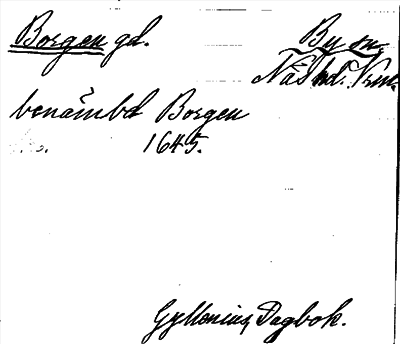 Borgen gd.
By sn.
Näs hd. Vrml.
benämbd Borgen
1645.
Gyllenius, Dagbok.